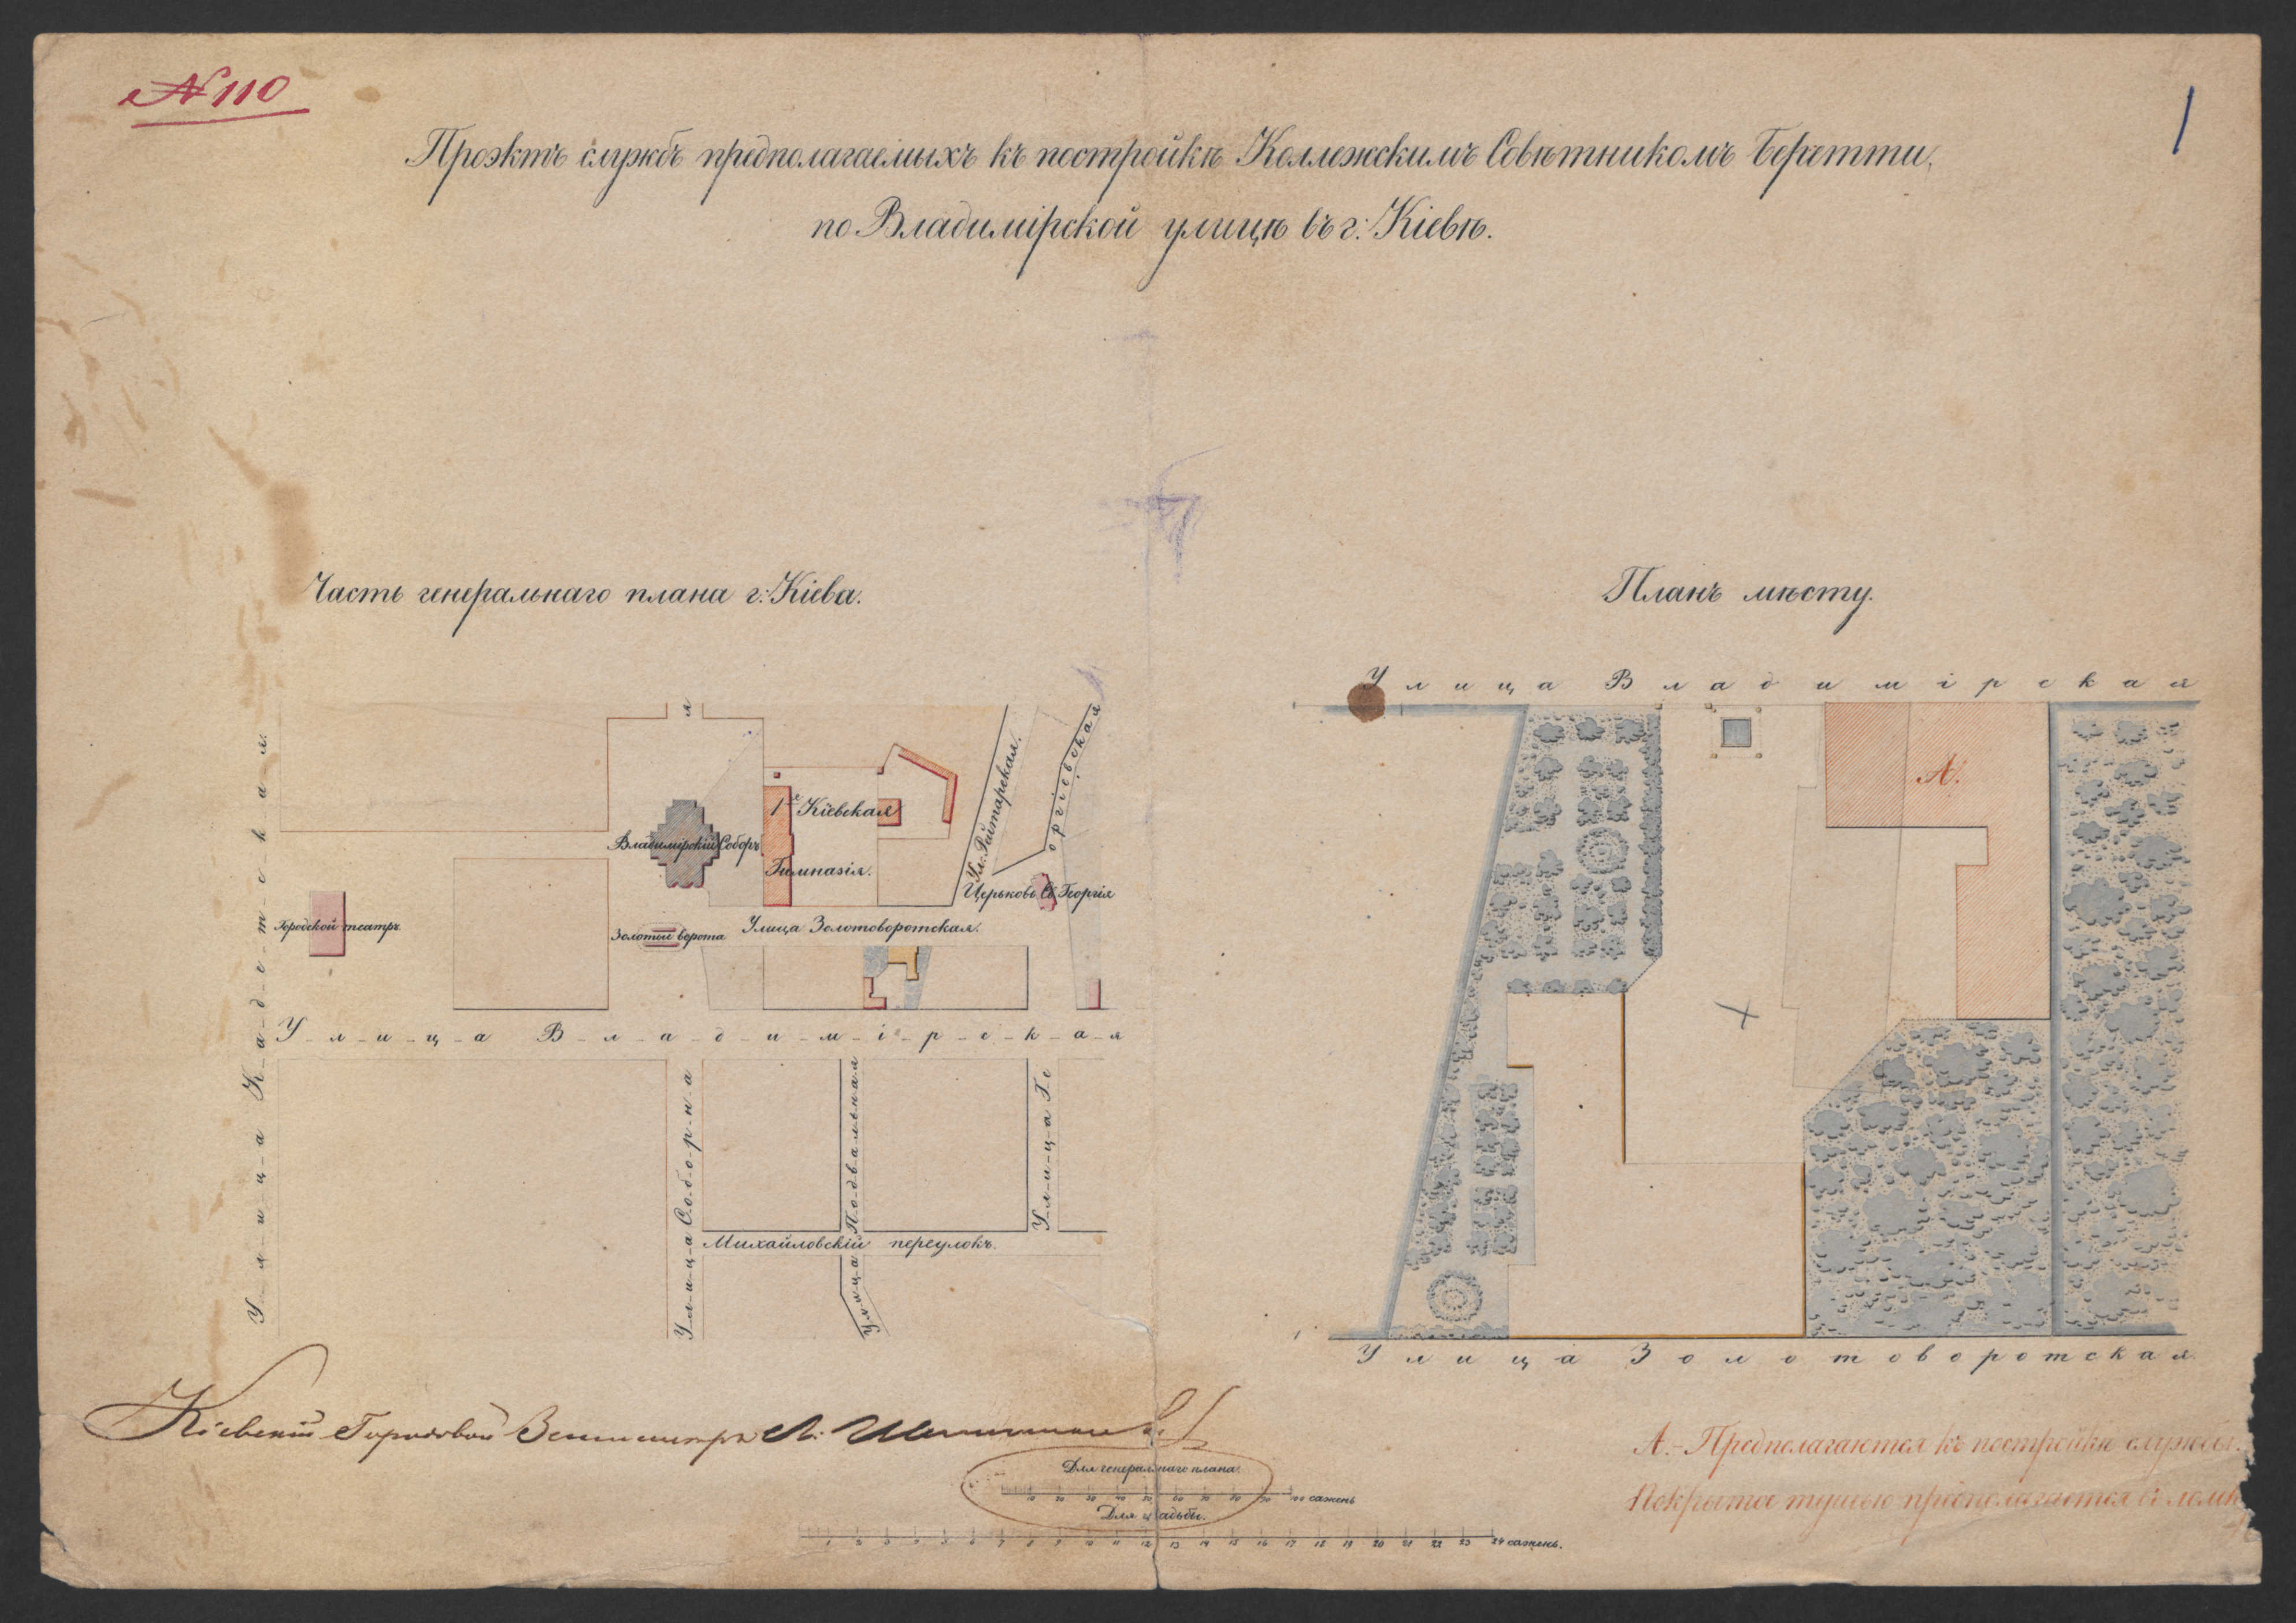 № 110
1
Проэктъ службъ предполагаемыхъ къ постройкѣ Коллежскимъ Совѣтникомъ Беретти,
по Владимірской улицѣ въ г: Кіевѣ.
Часть генеральнаго плана г: Кіева.
Планъ мѣсту.
Улица Владимірская
А.
Улица Золотоворотская
Улица Кадетская.
я
1я Кіевская
Гимназія.
Владимірскій Соборъ
Ул: Рейтарская.
оргіевская
Церьковь Св. Георгія
Городской театръ
Золотыи ворота
Улица Золотоворотская.
Улица Владимірская
Улица Соборна
Улица Подвальная
Улица Ге
Михайловскій переулокъ.
Улица
Кіевскій Городовой
Для генеральнаго плана.
10 20 30 40 50 60 70 80 90 100 сажень
Для усадьбы.
1 2 3 4 5 6 7 8 9 10 11 12 13 14 15 16 17 18 19 20 21 22 23 24 сажень.
А.- Предполагаются къ постройкѣ службы.
Покрытое тушью предполагается въ ломк